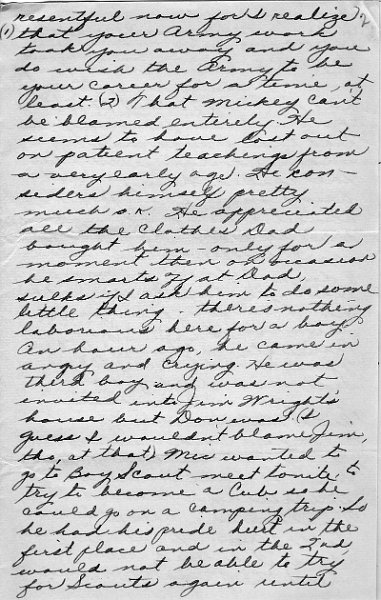 resentful now for I realize).
(1) that your Army work
took you away and you
do wish the Army to be
your career for a time, at
least. (2) That Mickey can't
be blamed entirely. He
seems to have lost out
on patient teachings from
a very early age. He con-
siders himself pretty
much o.k. He appreciated
all the clothes Dad
bought him - only for a
moment then on occasion
he smarts off at Dad,
sulks if I ask him to do some
little thing - there's nothing
laborious here for a boy.
An hour ago, he came in
angry and crying. He was
third boy and was not
invited into Jim Wright's
house but Don was (I
guess I wouldn't blame Jim,
tho, at that) Mic wanted to
go to Boy Scout meet tonite to
try to become a Cub so he
could go on a camping trip. So
he had his pride hurt in the
first place and in the 2nd,
would not be able to try
for Scouts again until